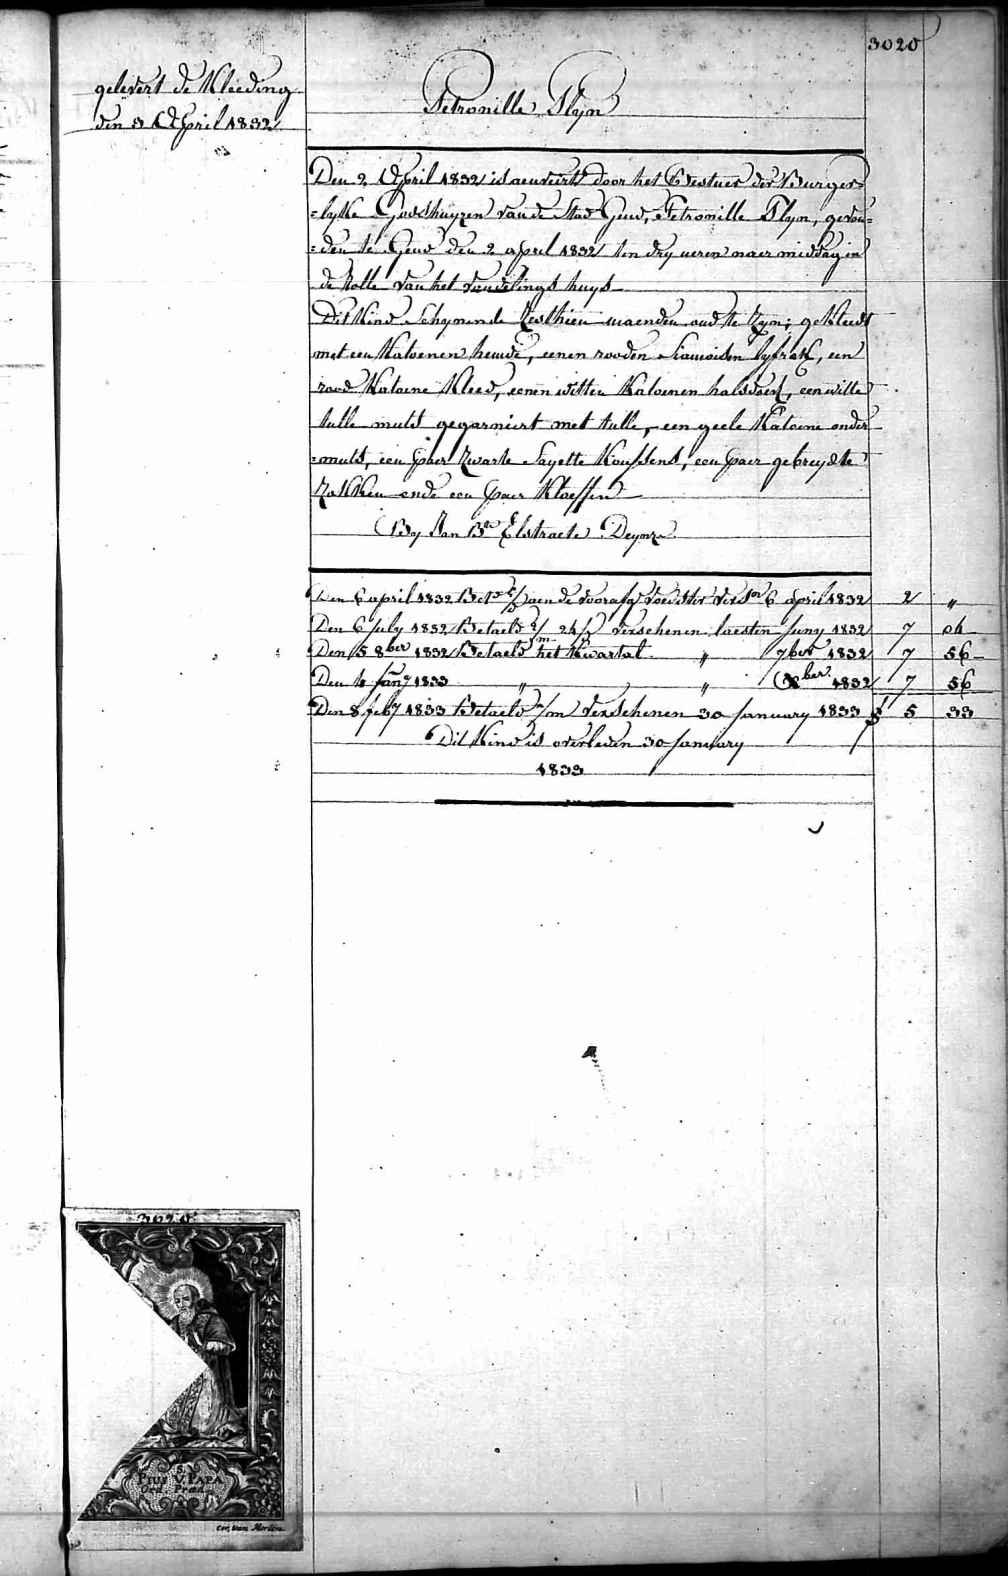 3020
gelevert de Kleeding
den 3 April 1832
Petronille Plyn
Den 2 April 1832 is aenveirt door het Bestuer der Burger=
=lyke Godshuyzen van de Stad Gend, Petronille Plyn, gevon=
=den te Gend den 2 april 1832 ten dry ueren naermiddag in
de Rolle van het vondelings huys
Dit Kind schynende zesthien maenden oud te zyn; gekleedt
met een Katoenen hemde, eenen rooden Siamoisen lyfrok, een
rood Katoene Kleed, eenen witten Katoenen halsdoek, een witte
tulle muts gegarniert met tulle, een geele Katoene onder=
=muts, een paer zwarte Sayette Koussens, een paer gebreyde
zokken ende een paer Kloeffen
By Jan Bte Elstraete Deynze
Den 6 april 1832 aen de voorafg voedster versn 6 april 1832 2 "
Den 6 July 1832 betaeld 24 verschenen laesten Juny 1832 7 06
Den 15 8ber 1832 betaeld het Kwartal " 7ber 1832 7 56
Den 4 Jany 1833 " " Xber 1832 7 56
Den 8 feby 1833 betaeld 1/m verschenen 30 January 1833 5 33
Dit Kind is overleden 30 January
1833
3020
S.
PIUS V. PAPA
Cor. van Merlen